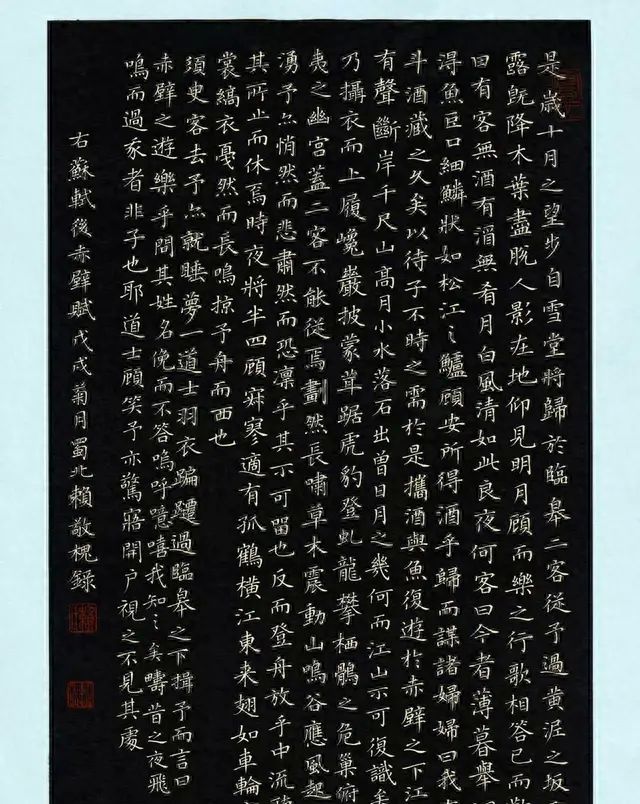 是歲十月之望步自雪堂將歸於臨皋二客從予過黃泥之坂
露既降木葉盡脫人影在地仰見明月顧而樂之行歌相答已而
曰有客無酒有酒無肴月白風清如此良夜何客曰今者薄暮舉
得魚巨口細鱗狀如松江之鱸顧安所得酒乎歸而謀諸婦婦曰我
斗酒藏之久矣以待子不時之需於是攜酒與魚復遊於赤壁之下江
有聲斷岸千尺山高月小水落石出曾日月之幾何而江山不可復識矣
乃攝衣而上履巉巖披蒙茸踞虎豹登虬龍攀栖鶻之危巢俯
夷之幽宮蓋二客不能從焉劃然長嘯草木震動山鳴谷應風起
湧予亦悄然而悲肅然而恐凜乎其不可留也反而登舟放乎中流
其所止而休焉時夜將半四顧寂寥適有孤鶴橫江東來翅如車輪
裳縞衣戛然而長鳴掠予舟而西也
須臾客去予亦就睡夢一道士羽衣蹁躚過臨皋之下揖予而言曰
赤壁之遊樂乎問其姓名俛而不答嗚呼噫嘻我知之矣疇昔之夜飛
鳴而過我者非子也耶道士顧笑予亦驚寤開戶視之不見其處
右蘇軾後赤壁賦戊戌菊月蜀北賴敬槐錄